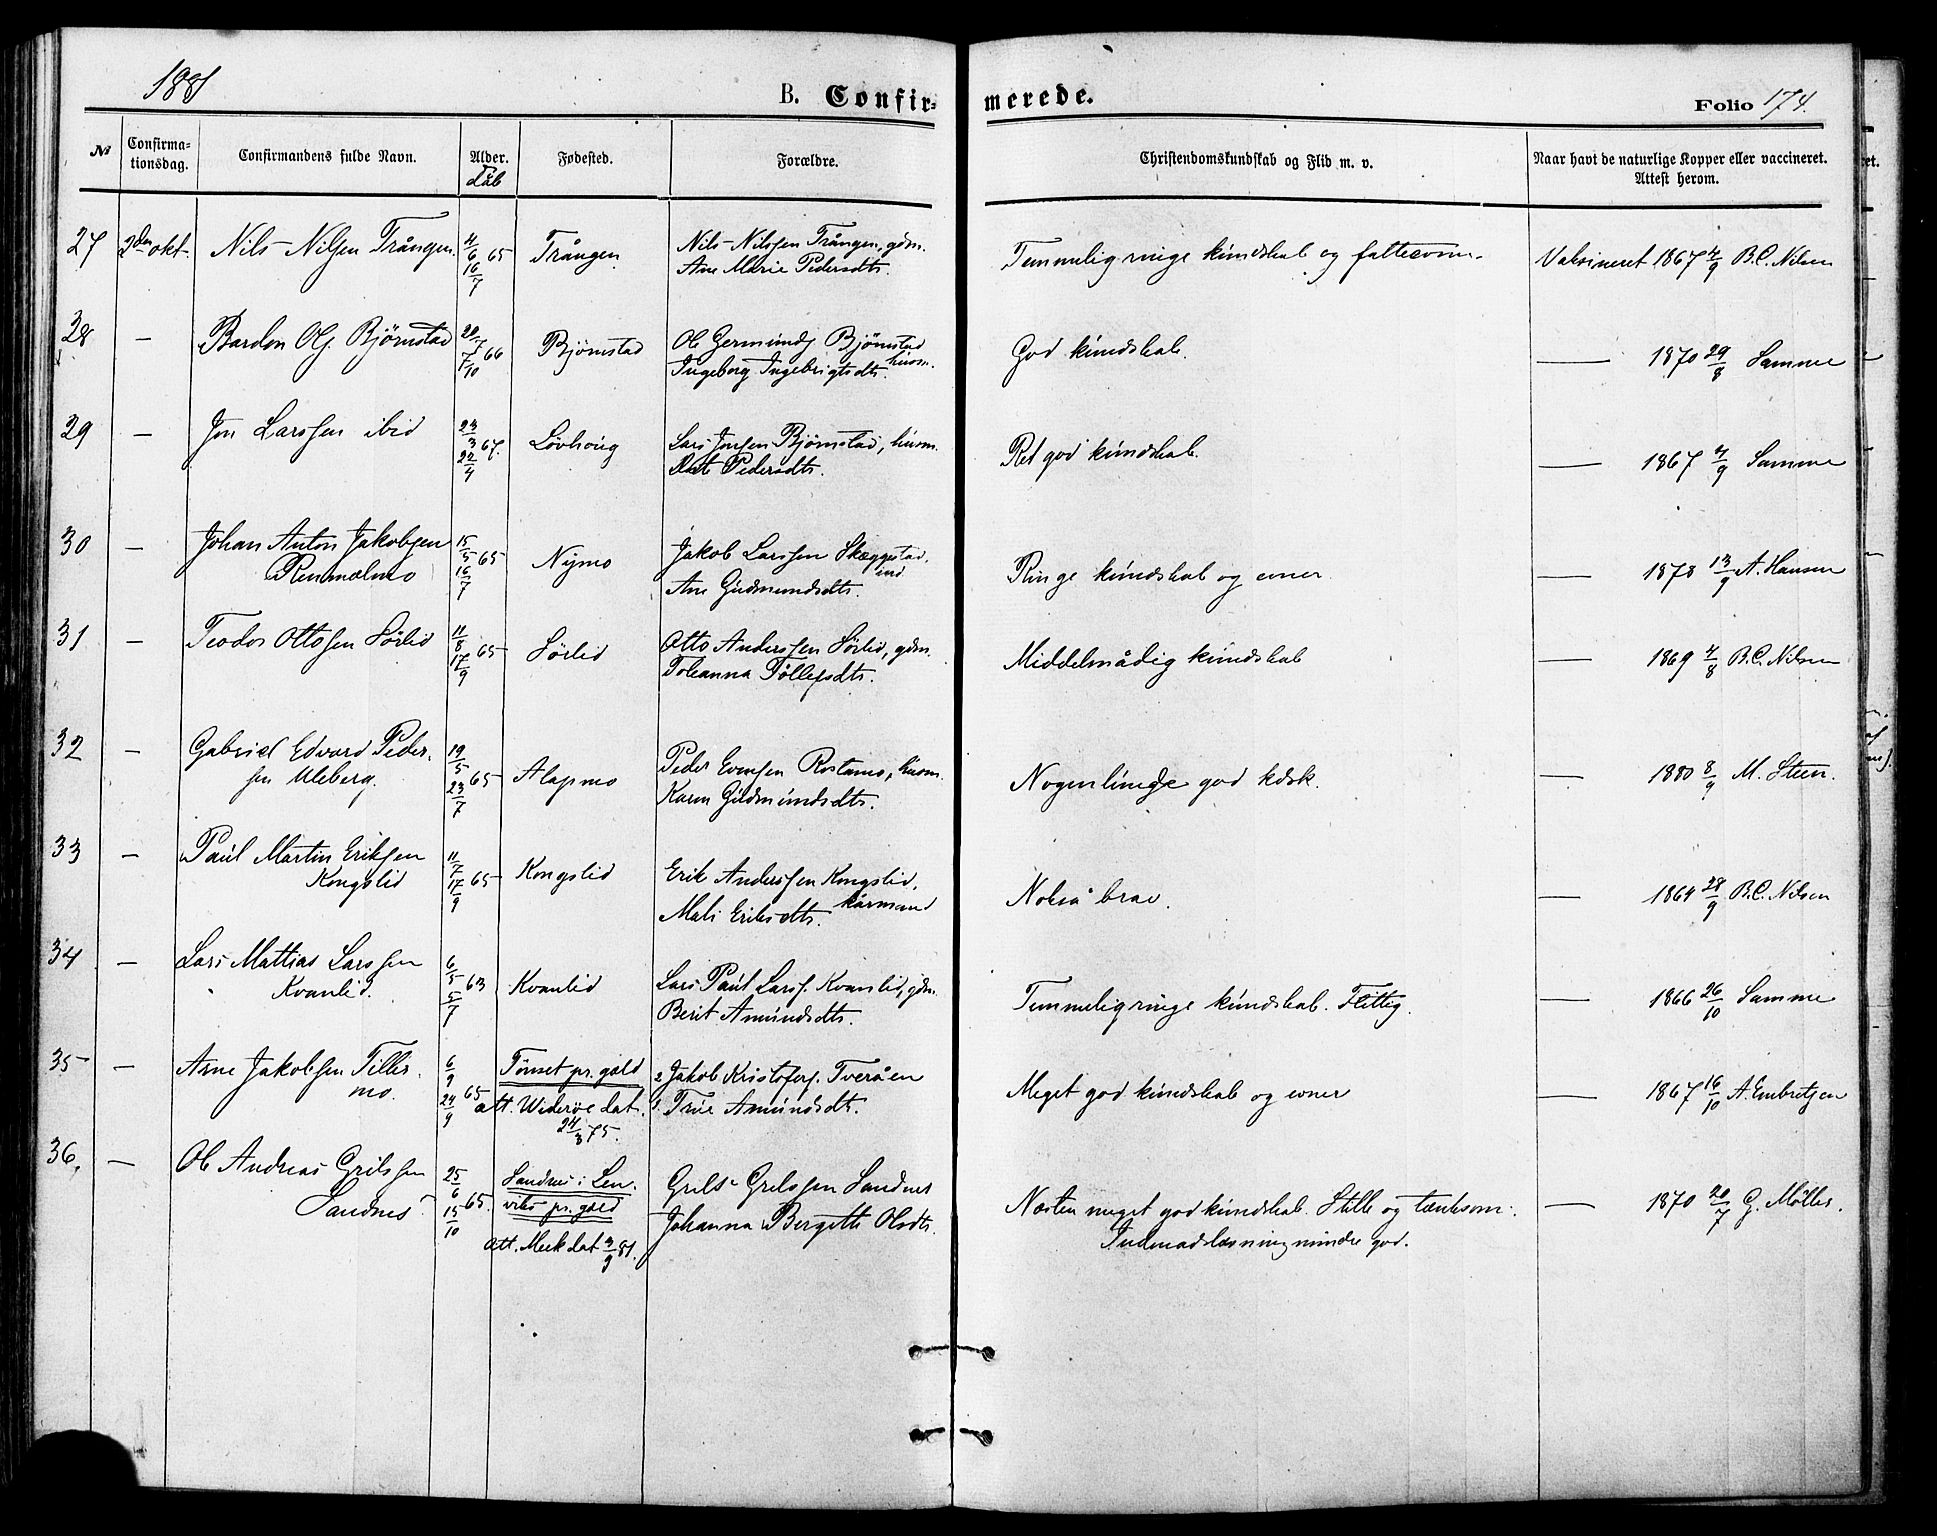 1881 B. Confirmerede. Folio 174.
№ Confirmationsdag. Confirmandens fulde Navn. Alder. dåb Fødested. Forældre. Christendomskundskab og Flid m. v. Naar havt de naturlige Kopper eller vaccineret. Attest herom.
27 2den okt. Nils Nilssen Trången 4/6 65 16/7 Trången Nils Nilssen Trången, gdm. Temmelig ringe kundskab og fatteevne. Vaksineret 1867 4/9 B.C. Nilsen
Ane Marie Pedersdtr.
28 — Bardon Ols. Bjørnstad 20/7 66 7/10 Bjørnstad Ole Germunds. Bjørnstad God kundskab. — 1870 29/8 Samme
Ingeborg Ingebrigtsdtr. husm.
29 — Jon Larssen ibid 23/3 67. 22/4 Løvhoug Lars Jonsen Bjørnstad, husm. Ret god kundskab. — 1867 4/9 Samme
Pedersdtr.
30 — Johan Anton Jakobsen 15/5 65 16/7 Nymo Jakob Larssen Skæggestad, Ringe kundskab og evner. — 1878 13/9 A. Hansen
Renmælmo ind.
Ane Gudmundsdtr.
31 — Teodor Ottosen Sørlid 11/8 65 17/9 Sørlid Otto Anderssen Sørlid, gdm. Middelmådig kundskab — 1869 4/8 B.C. Nilsen
Johanna Tollefsdtr.
32 — Gabriel Edvard Peder- 19/5 65 23/7 Alapmo Peder Evensen Rostamo, husm. Nogenlunde god kdsk. — 1880 8/9 M. Steen.
sen Uleberg. Karen Gudmundsdtr.
33 — Paul Martin Eriksen 11/7 65 17/9 Kongslid Erik Anderssen Kongslid, Nokså brav. — 1864 28/9 B.C. Nilsen
Kongslid kårmand
Mali Eriksdtr.
34 — Lars Mattias Larssen 6/5 63 5/7 Kvanlid Lars Paul Larss. Kvanlid, gdm. Temmelig ringe kundskab. Flittig. — 1866 26/10 Samme
Kvanlid. Berit Amundsdtr.
35 — Arne Jakobsen Tiller- 6/9 65 24/9 Tønset pr.gæld 2 Jakob Kristofers. Tveråen Meget god kundskab og evner — 1867 16/10 A. Embretsen
mo. att. Widerøe dat. 24/3 75. 1 True Amundsdtr.
36. — Ole Andreas Grelssen 25/6 65. 15/10 Sandnes i Len- Grels Grelssen Sandnes Næsten meget god kundskab. Stille og tænksom. — 1870 20/7 G. Møller.
Sandnes viks pr.gæld Johanna Bergette Olsdtr. Indenadslæsning mindre god.
att. Meek dat 3/9 81.